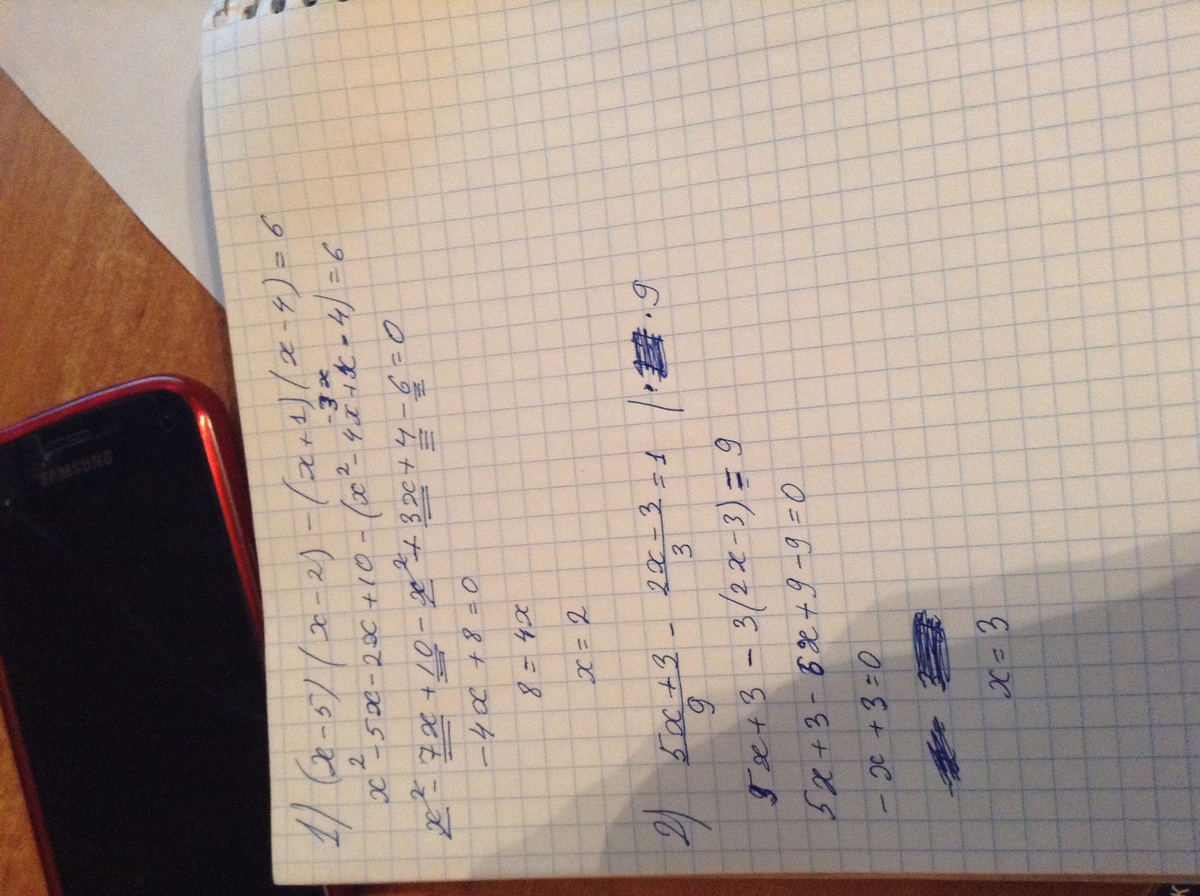 1) (x-5)(x-2)-(x+1)(x-4)=6
-3x
x²-5x-2x+10-(x²-4x+1x-4)=6
x²-7x+10-x²+3x+4-6=0
-4x+8=0
8=4x
x=2
2) (5x+3)/9 - (2x-3)/3 = 1 | · 9
5x+3-3(2x-3)=9
5x+3-6x+9-9=0
-x+3=0
x=3
SAMSUNG